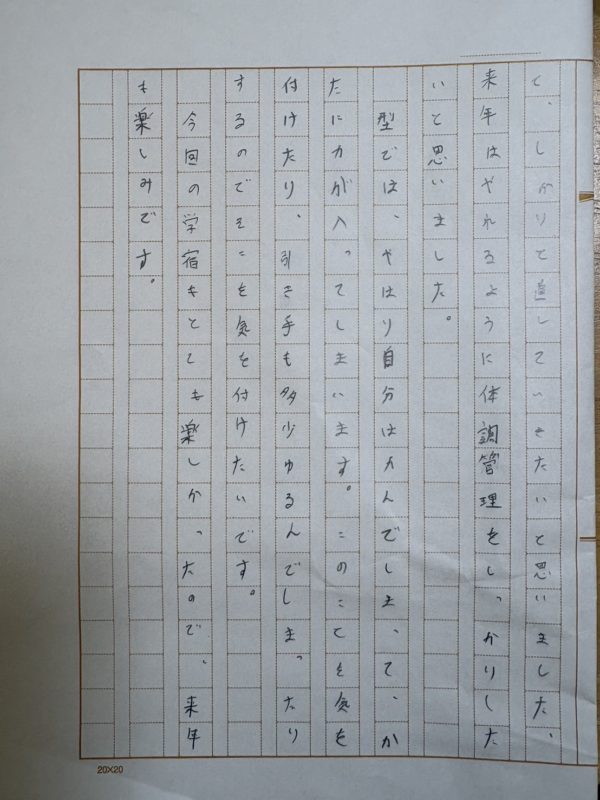 と、しかりと直していきたいと思いました、
来年はやれるように体調管理をしっかりした
いと思いました。
型では、やはり自分は力んでしまって、か
たに力が入ってしまいます。このことを気を
付けたり、引き手も多少ゆるんでしまったり
するのでそこを気を付けたいです。
今回の学宿もとても楽しかったので、来年
も楽しみです。
20×20